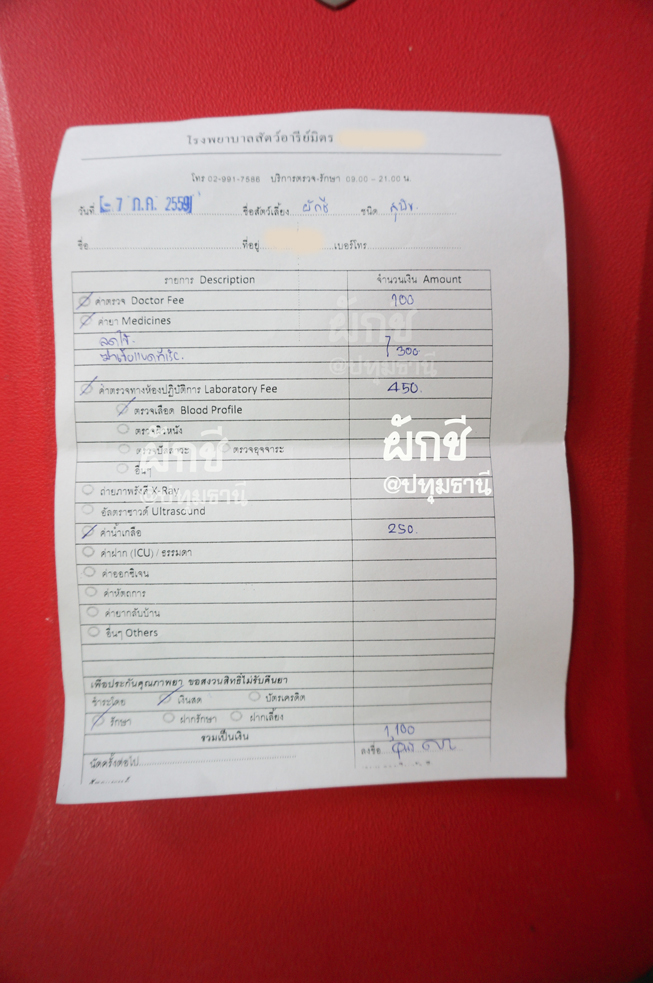 โรงพยาบาลสัตว์อารีย์มิตร
โทร 02-991-7586 บริการตรวจ-รักษา 09.00 – 21.00 น.
วันที่ - 7 ก.ค. 2559 ชื่อสัตว์เลี้ยง ผักชี ชนิด สุนัข
ชื่อ ที่อยู่ เบอร์โทร
รายการ Description จำนวนเงิน Amount
ค่าตรวจ Doctor Fee 100
ค่ายา Medicines
ลดไข้
ฆ่าเชื้อแบคทีเรีย 300
ค่าตรวจทางห้องปฏิบัติการ Laboratory Fee 450.
ตรวจเลือด Blood Profile
ตรวจผิวหนัง
ตรวจปัสสาวะ ตรวจอุจจาระ
อื่นๆ
ถ่ายภาพรังสี X-Ray
อัลตราซาวด์ Ultrasound
ค่าน้ำเกลือ 250.
ค่าฝาก (ICU) / ธรรมดา
ค่าออกซิเจน
ค่าหัตถการ
ค่ายากลับบ้าน
อื่นๆ Others
เพื่อประกันคุณภาพยา ขอสงวนสิทธิ์ไม่รับคืนยา
ชำระโดย เงินสด บัตรเครดิต
รักษา ฝากรักษา ฝากเลี้ยง
รวมเป็นเงิน 1,100
นัดครั้งต่อไป ลงชื่อ
ผักชี
@ปทุมธานี
ผักชี
@ปทุมธานี
ผักชี
@ปทุมธานี